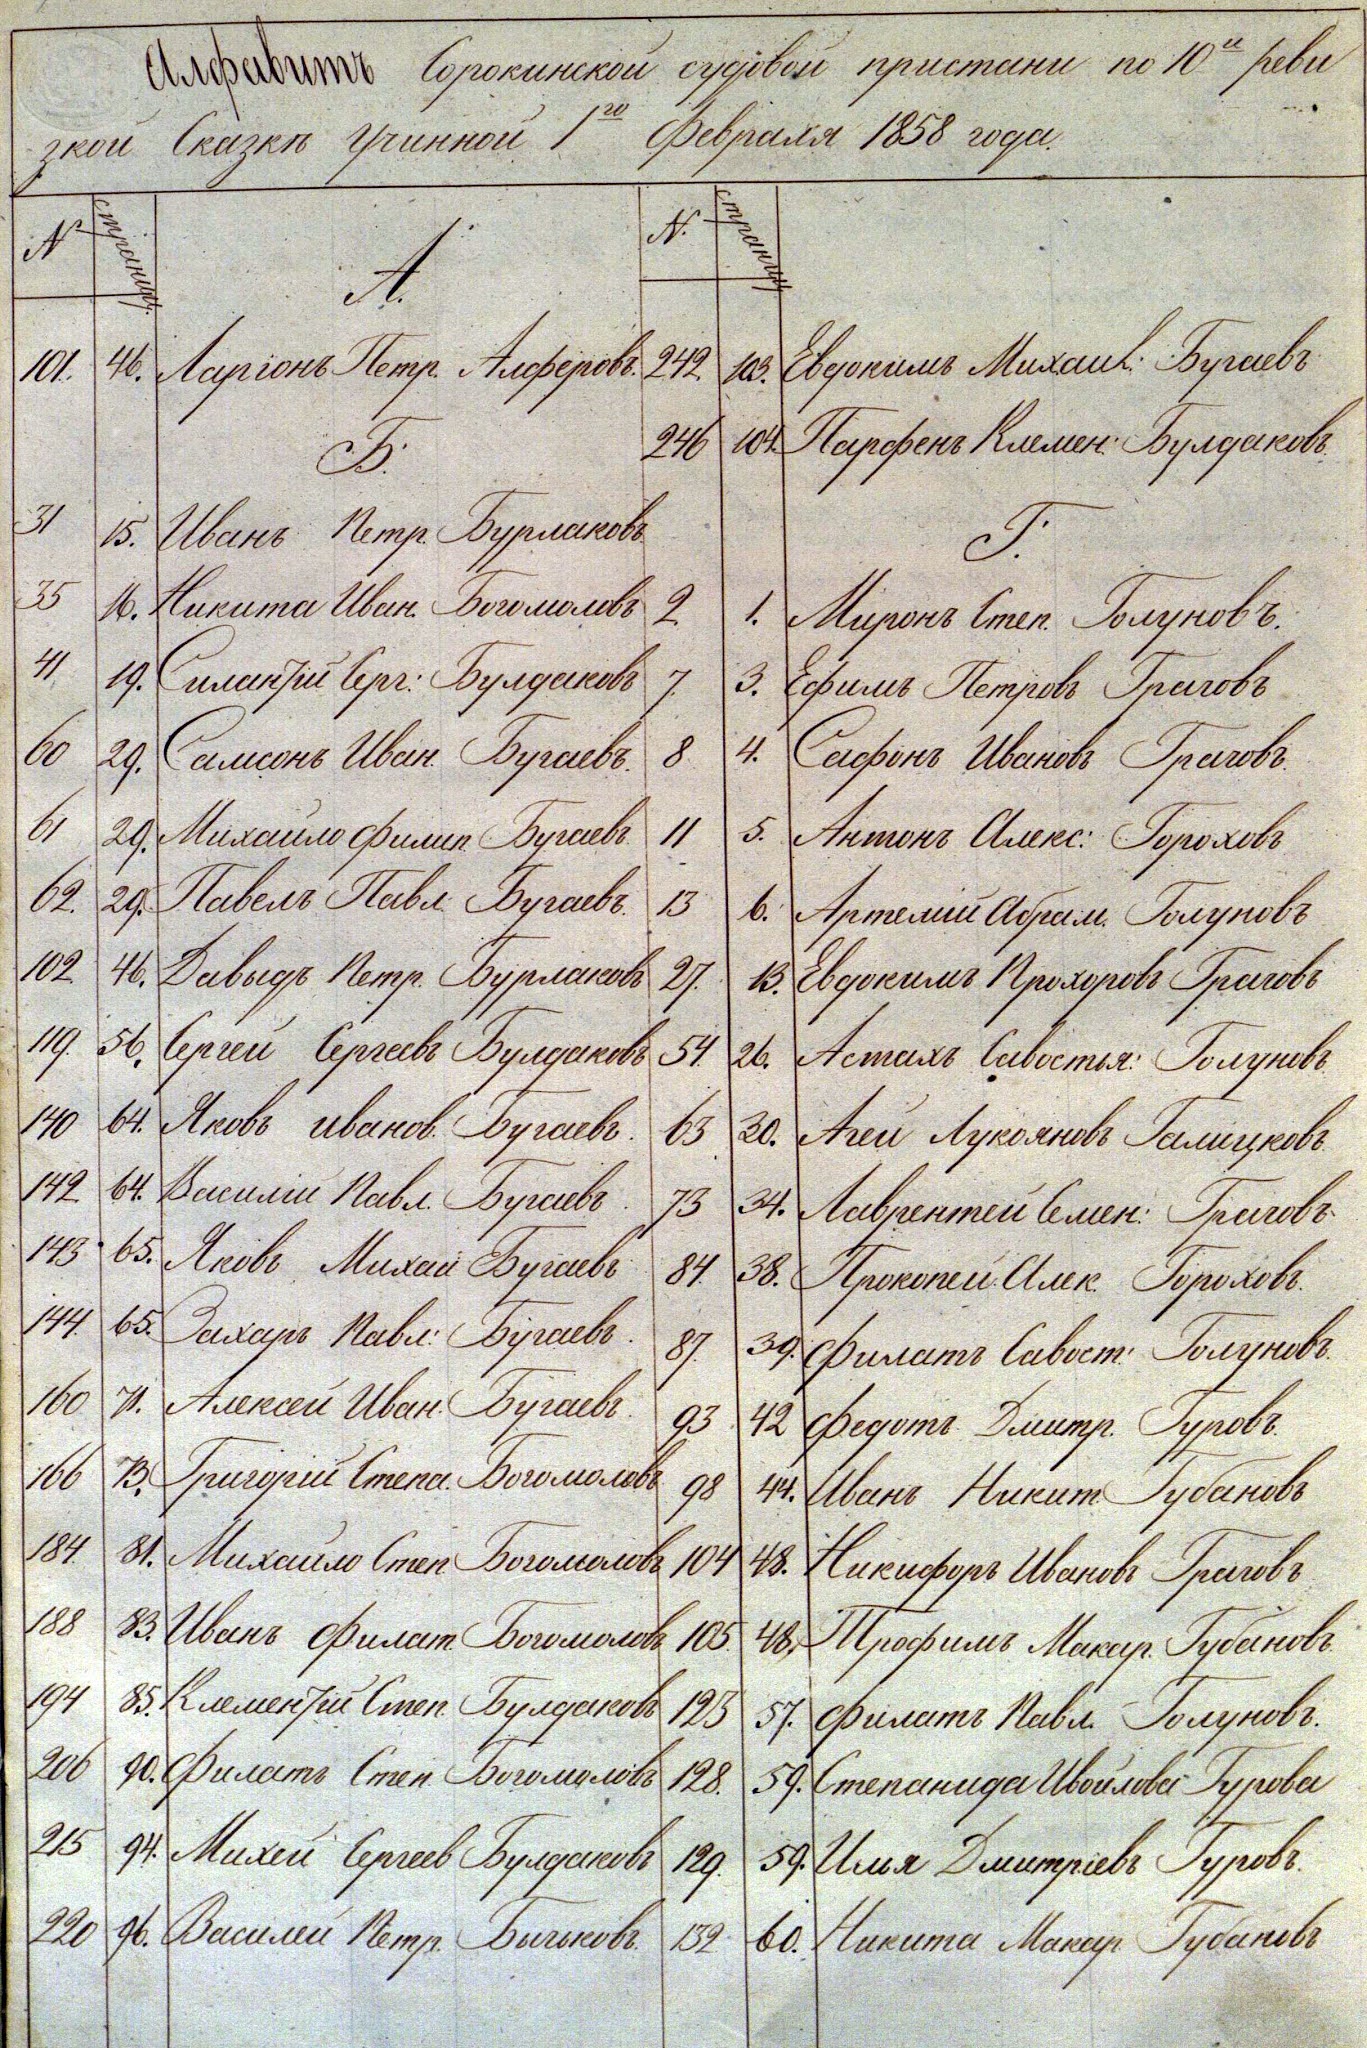 Алфавитъ Сорокинской судовой пристани по 10й реви
зкой Сказкѣ учинной 1го Февраля 1858 года.
№ страницы
А.
101. 46. Ларіонъ Петр. Алферовъ.
Б.
31 15. Иванъ Петр. Бурлаковъ
35 16. Никита Иван. Богомоловъ
41 19. Силантій Серг: Булдаковъ
60 29. Самсонъ Иван. Бугаевъ.
61 29. Михайло Филип. Бугаевъ
62. 29. Павелъ Павл. Бугаевъ.
102 46. Давыдъ Петр. Бурлаковъ
119. 56. Сергей Сергеевъ Булдаковъ
140 64. Яковъ иванов. Бугаевъ.
142 64. Василій Павл. Бугаевъ.
143 65. Яковъ Михай Бугаевъ
144. 65. Захаръ Павл: Бугаевъ.
160 71. Алексей Иван. Бугаевъ.
166 73. Григорій Степа. Богомоловъ
184. 81. Михайло Степ. Богомоловъ
188 83. Иванъ Филат. Богомоловъ
194 85. Клементій Степ. Булдаковъ
206 90. Филатъ Степ. Богомоловъ
215 94. Михей Сергеев Булдаковъ
220 96. Василей Петр. Бычьковъ.
№. страницы
242. 103. Евдокимъ Михаил: Бугаевъ
246 104. Парфенъ Клемен: Булдаковъ.
Г.
2. 1. Миронъ Степ. Голуновъ.
7. 3. Ефимъ Петровъ Грачовъ
8 4. Сафонъ Ивановъ Грачовъ.
11 5. Антонъ Алекс: Гороховъ
13 6. Артемій Абрам. Голуновъ
27. 13. Евдокимъ Прохоровъ Грачовъ
54. 26. Астахъ Савостья: Голуновъ.
63 30. Агей Лукояновъ Галицковъ.
73 34. Лаврентей Семен: Грачовъ.
84. 38. Прокопей Алек. Гороховъ.
87. 39. Филатъ Савост: Голуновъ.
93 42 Федотъ Дмитр. Гуровъ.
98 44. Иванъ Никит. Губановъ
104 48. Никифоръ Ивановъ Грачовъ
105 48. Трофимъ Макар. Губановъ.
123 57. Филатъ Павл. Голуновъ.
128. 59. Степанида Ивойлова Гурова
129. 59. Илья Дмитріевъ Гуровъ.
132 60. Никита Макар. Губановъ